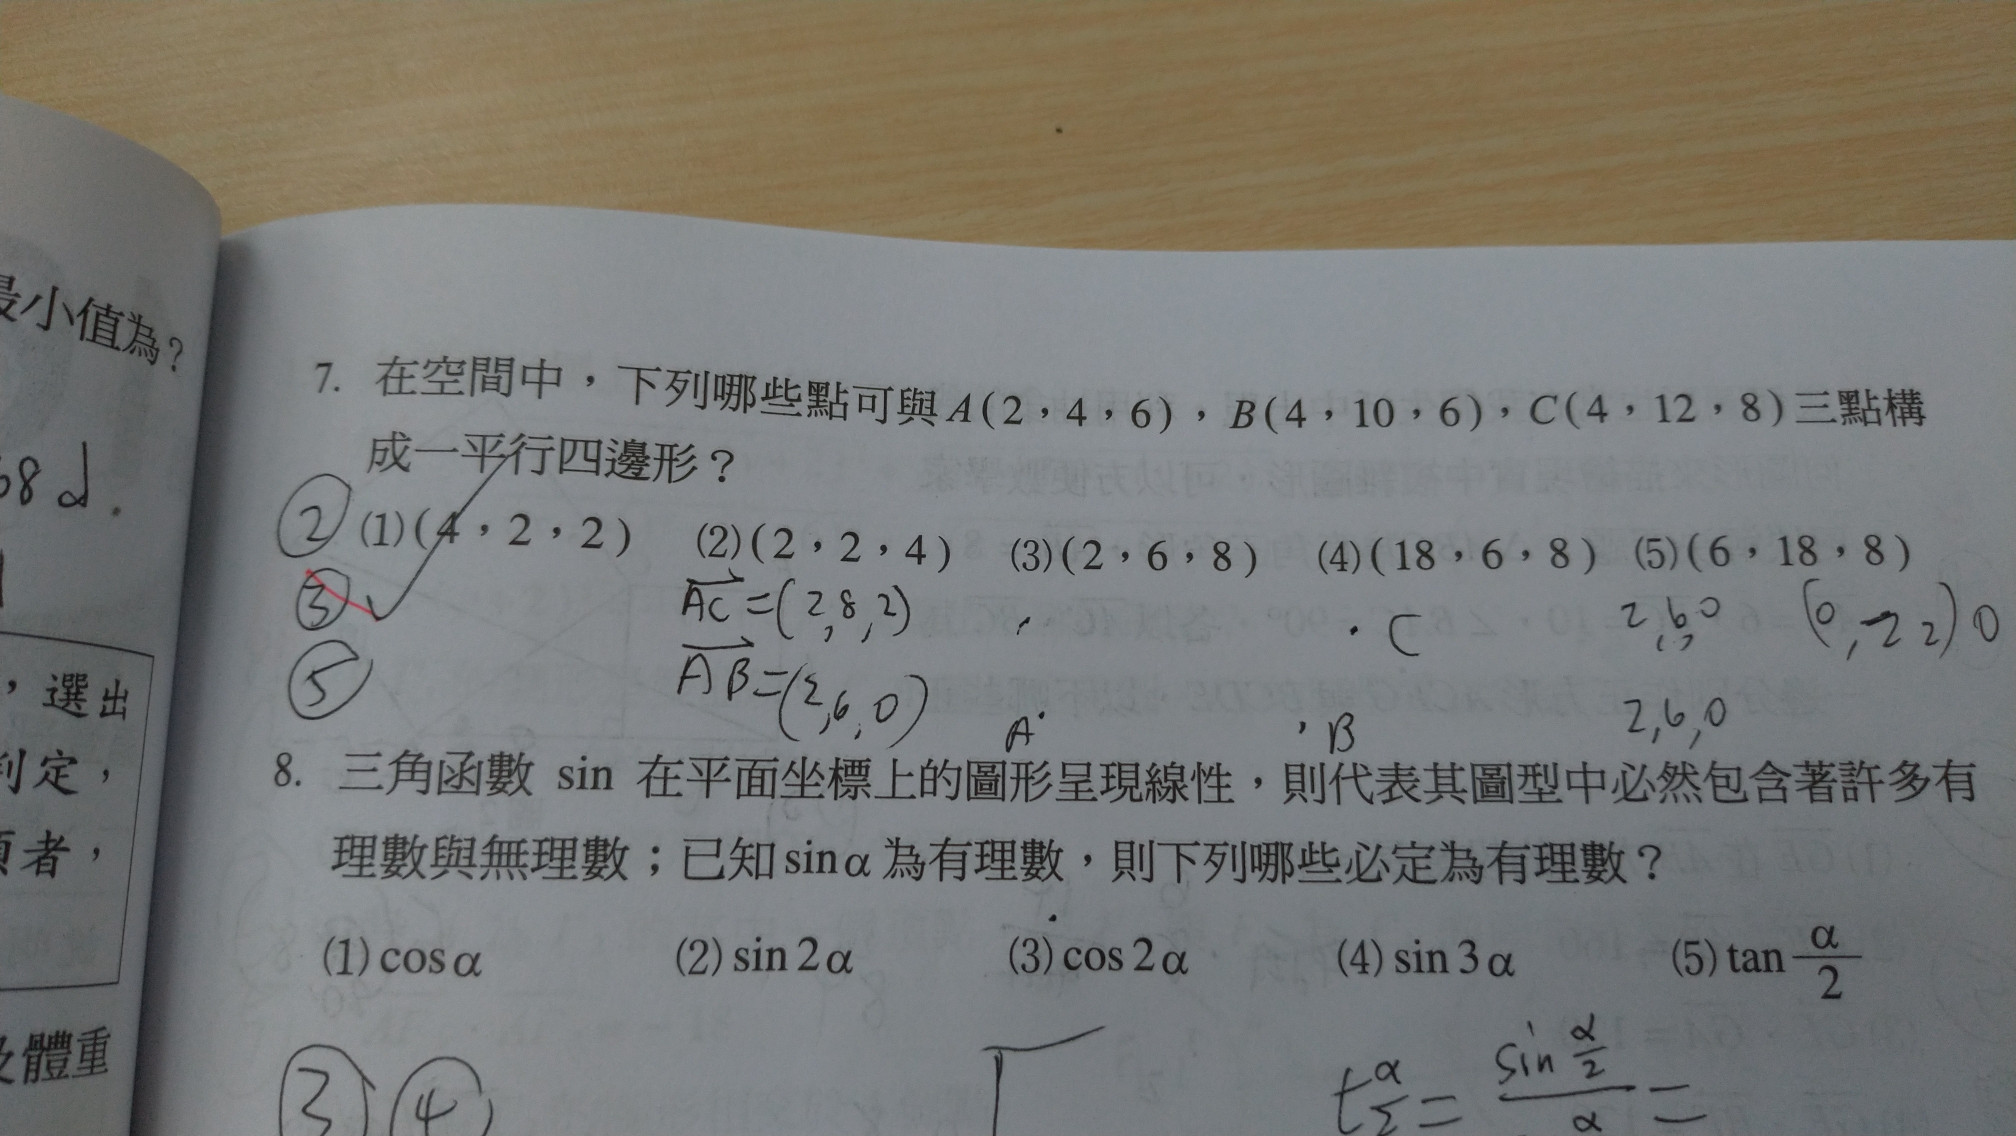 最小值為?
68d.
，選出
判定，
者，
及體重
7. 在空間中，下列哪些點可與A(2，4，6)，B(4，10，6)，C(4，12，8)三點構
成一平行四邊形？
② (1)(4，2，2) (2)(2，2，4) (3)(2，6，8) (4)(18，6，8) (5)(6，18，8)
③
⑤
AC=(2,8,2) C 2,6,0 (0,-2 2)0
AB=(2,6,0) A B 2,6,0
8. 三角函數 sin 在平面坐標上的圖形呈現線性，則代表其圖型中必然包含著許多有
理數與無理數；已知sinα為有理數，則下列哪些必定為有理數？
(1)cosα (2)sin2α (3)cos2α (4)sin3α (5)tan α/2
③④ t α/2 = sin α/2 / α =